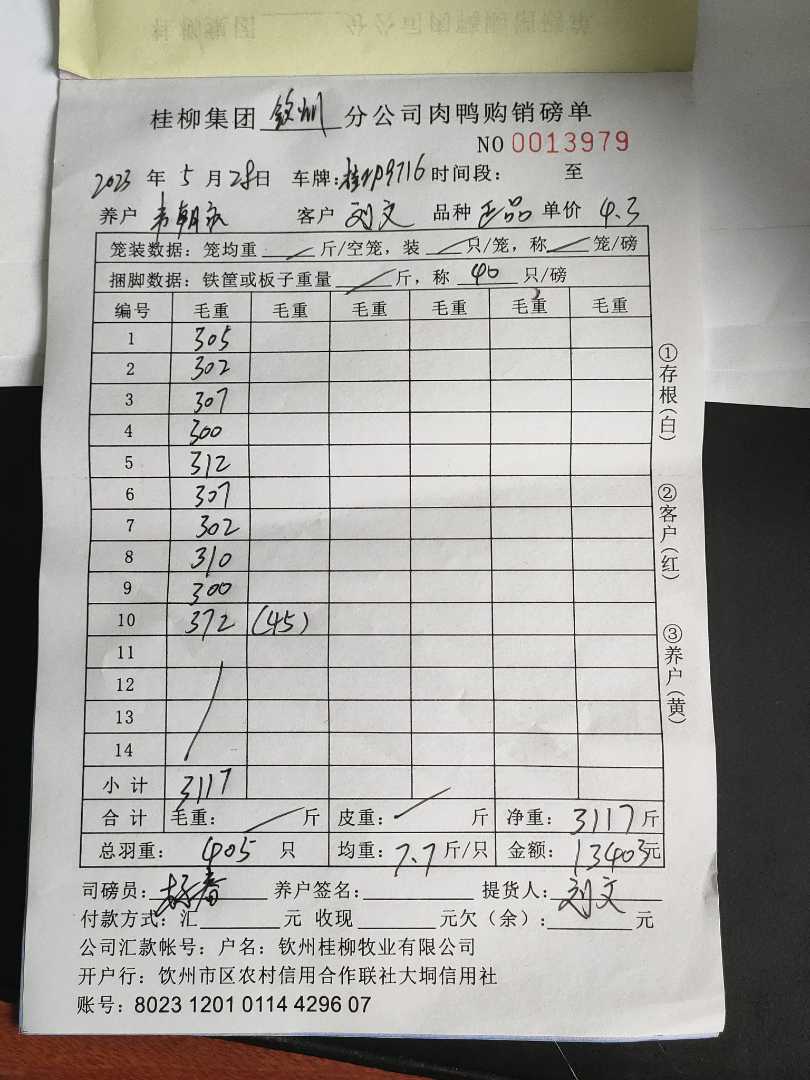 桂柳集团 钦州 分公司肉鸭购销磅单
NO 0013979
2023 年 5 月 28日 车牌:桂 P9716 时间段: 至
养户 韦朝 客户 刘文 品种 正品 单价 4.3
笼装数据: 笼均重 / 斤/空笼, 装 / 只/笼, 称 / 笼/磅
捆脚数据: 铁筐或板子重量 / 斤, 称 40 只/磅
编号 毛重 毛重 毛重 毛重 毛重 毛重
1 305
2 302
3 307
4 300
5 312
6 307
7 302
8 310
9 300
10 372 (45)
11
12
13
14
小 计 3117
合 计 毛重: / 斤 皮重: / 斤 净重: 3117 斤
总羽重: 405 只 均重: 7.7 斤/只 金额: 13403元
司磅员: 养户签名: 提货人: 刘文
付款方式: 汇 元 收现 元欠（余）: 元
公司汇款帐号: 户名: 钦州桂柳牧业有限公司
开户行: 饮州市区农村信用合作联社大垌信用社
账号: 8023 1201 0114 4296 07
①存根(白)
②客户(红)
③养户(黄)